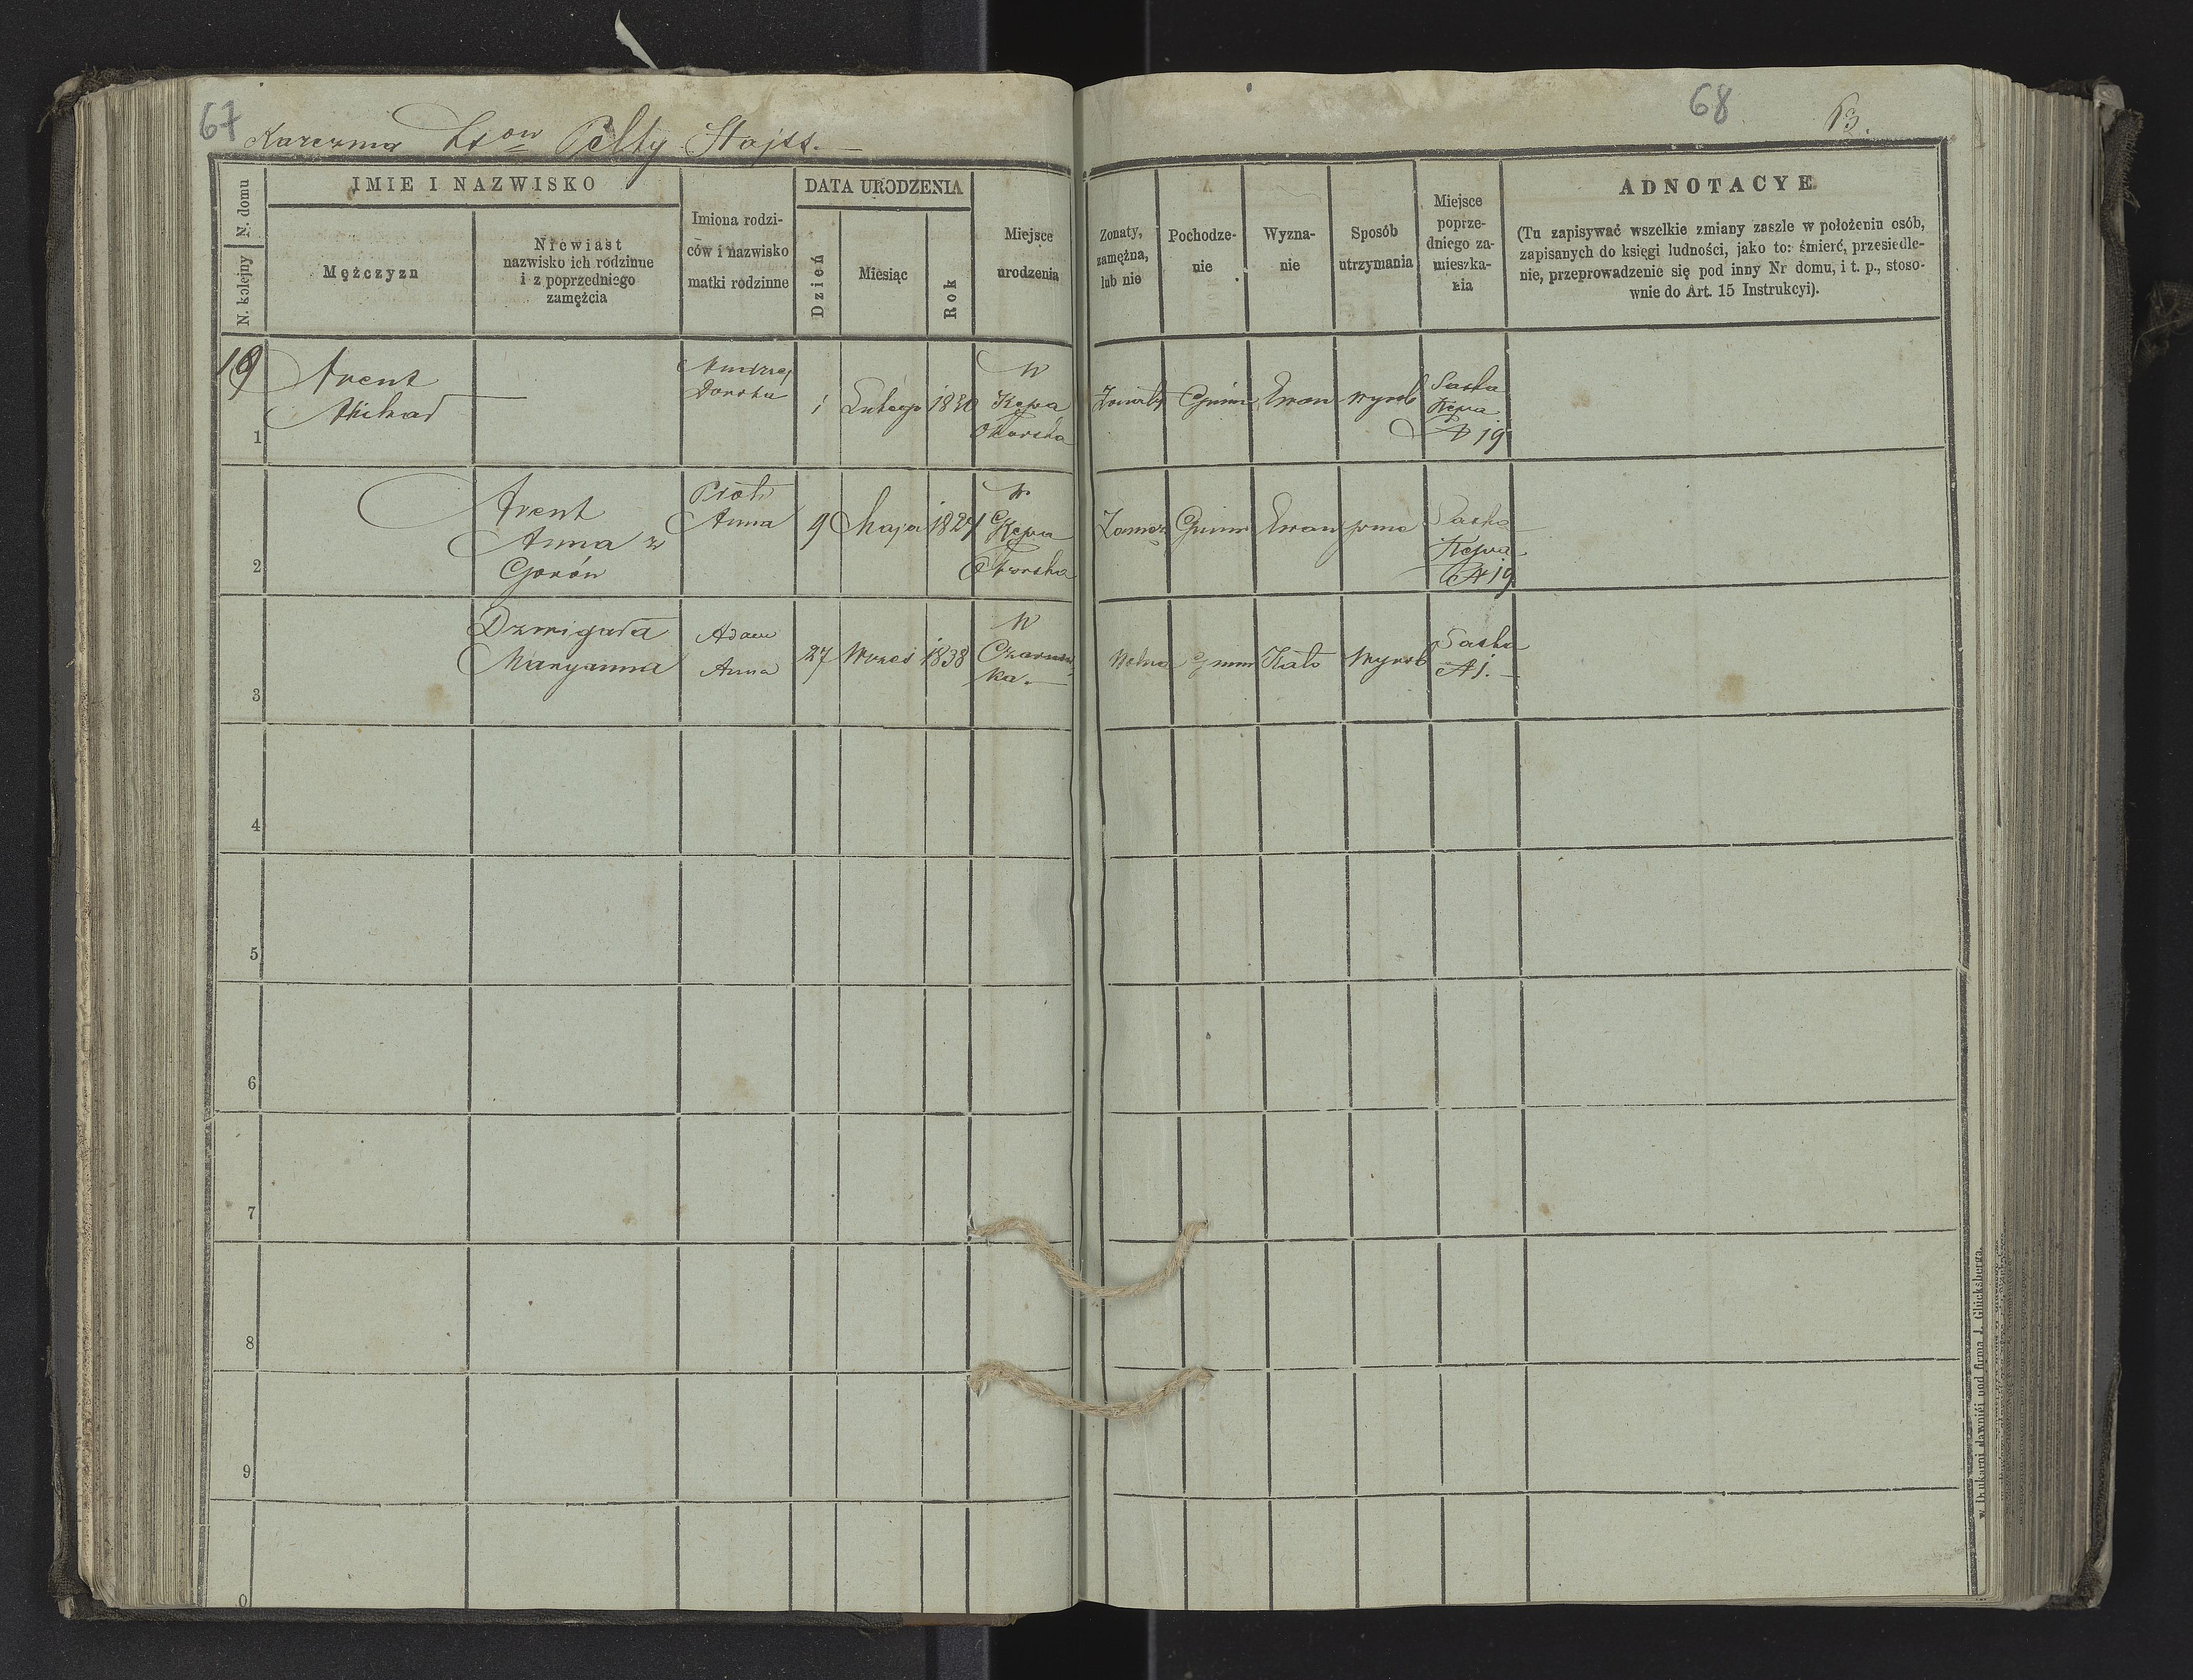 67
68
63.
Karczma Lit Pelty Stajss.
N. domu
N. kolejny
IMIE I NAZWISKO
Mężczyzn
Niewiast
nazwisko ich rodzinne
i z poprzedniego
zamężcia
Imiona rodzi-
ców i nazwisko
matki rodzinne
DATA URODZENIA
Dzień
Miesiąc
Rok
Miejsce
urodzenia
Zonaty,
zamężna,
lub nie
Pochodze-
nie
Wyzna-
nie
Sposób
utrzymania
Miejsce
poprze-
dniego za-
mieszka-
nia
ADNOTACYE
(Tu zapisywać wszelkie zmiany zaszłe w położeniu osób,
zapisanych do księgi ludności, jako to: śmierć, przesiedle-
nie, przeprowadzenie się pod inny Nr domu, i t. p., stoso-
wnie do Art. 15 Instrukcyi).
19
1
Arent
Michał
Andrzej
Dorota
1
Lutego
1830
W
Kępa
Zonaty
Gmin
Ewan
wyrob
Saska
Kępa
N 19
2
Arent
Anna z
Gorón
Piotr
Anna
9
Maja
1827
w
Kępa
Zamęż
Gmin
Ewan
Saska
Kępa
N 19
3
Dzwigała
Maryanna
Adam
Anna
27
Wrześ
1838
W
Czarnow
ka.
Wolna
Gmin
Kato
Wyrob
Saska
N 1.
4
5
6
7
8
9
0
w Drukarni dawniéj pod firmą J. Glücksberga.